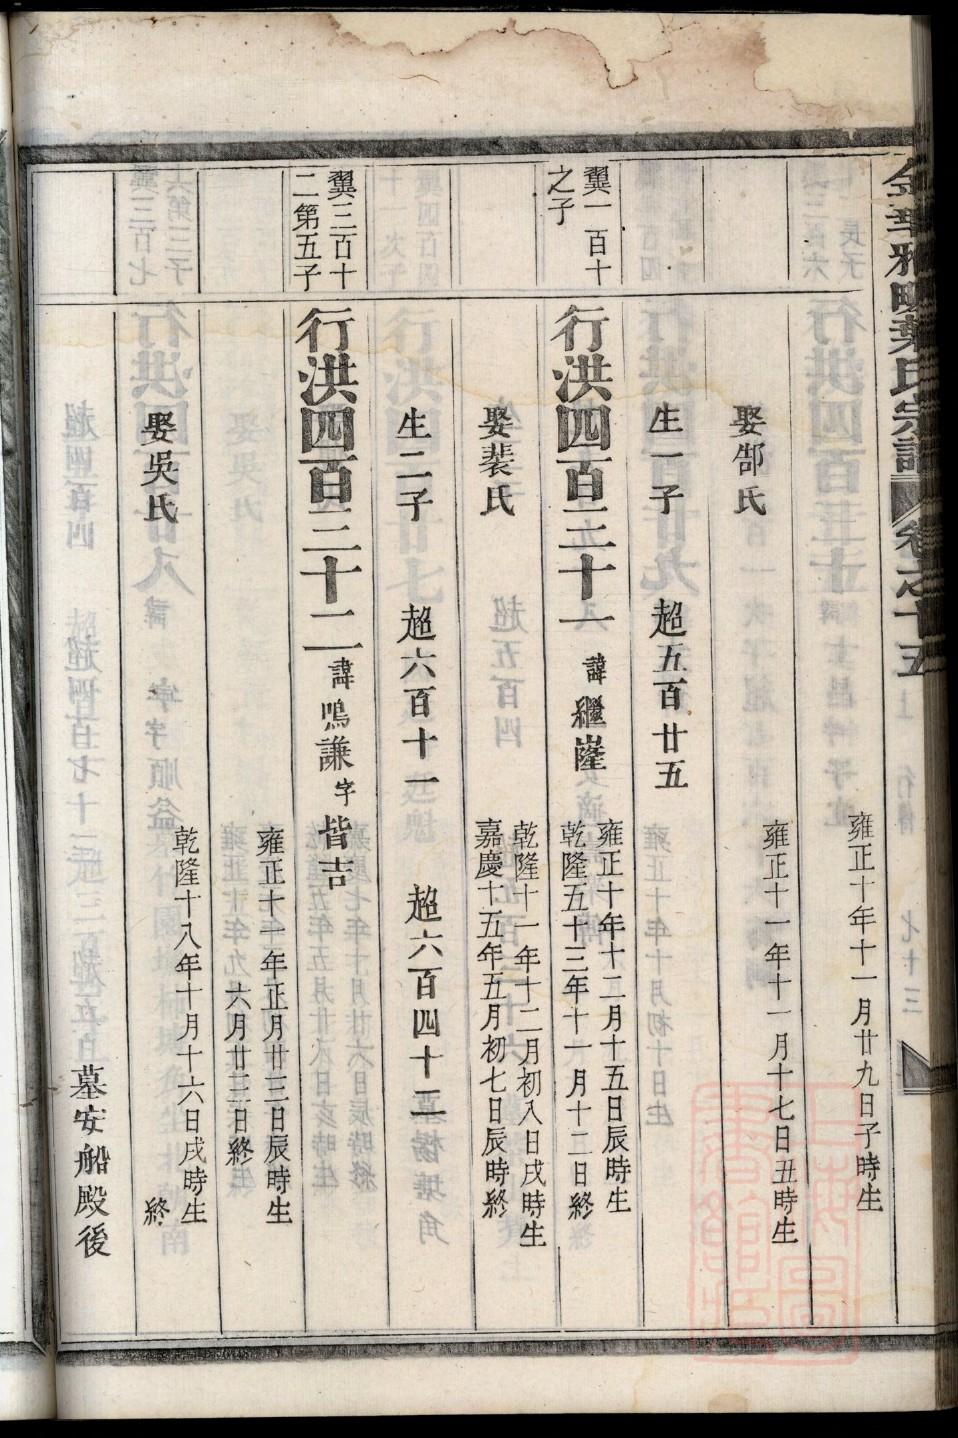 雍正十年十一月廿九日子時生
娶郜氏
雍正十一年十一月十七日丑時生
生一子
超五百廿五
翼一百十
之子
行洪四百三十一
諱繼嶐
雍正十年十二月十五日辰時生
乾隆五十三年十一月十二日終
娶裴氏
乾隆十一年十二月初八日戌時生
嘉慶十五年五月初七日辰時終
生二子
超六百十一
超六百四十二
翼三百十
二第五子
行洪四百三十二
諱鳴謙字皆吉
雍正十一年正月廿三日辰時生
六月廿三日終
娶吳氏
乾隆十八年十月十六日戌時生
終
墓安船殿後